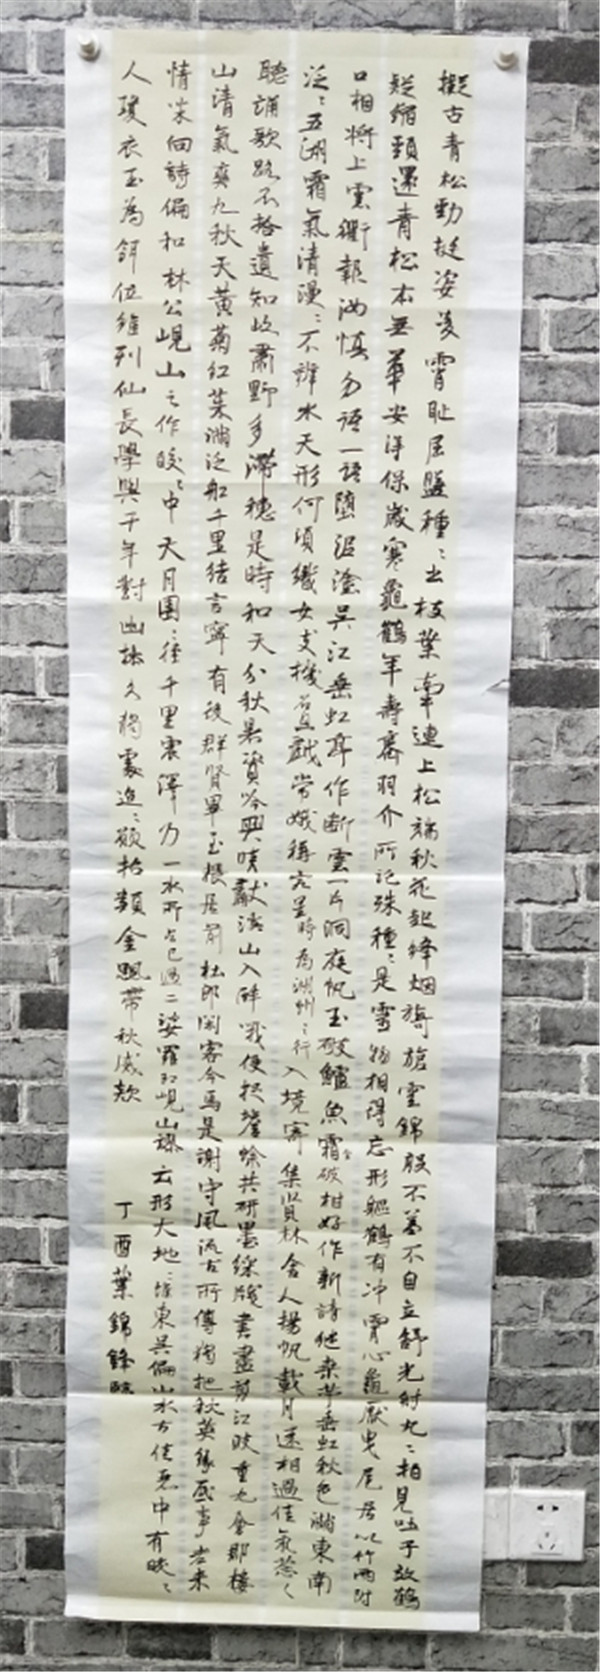 擬古青松勁挺姿凌霄恥屈盤種〻出枝葉牽連上松端秋花起絳烟旖旎雲錦殷不羞不自立舒光射丸〻柏見吐子效鶴
疑縮頸還青松本無華安得保歲寒龜鶴年壽齊羽介所託殊種〻是靈物相得忘形軀鶴有冲霄心龜厭曳尾居以竹兩附
口相將上雲衢報汝慎勿語一語墮泥塗吳江垂虹亭作断雲一片洞庭帆玉破鱸魚霜金破柑好作新詩繼桑苧垂虹秋色滿東南
泛〻五湖霜氣清漫〻不辨水天形何須織女支機石且戲常娥稱客星時為湖州之行入境寄集賢林舍人揚帆載月遠相過佳氣葱〻
聽誦歌路不拾遺知政肅野多滯穗是時和天分秋暑資吟興晴獻溪山入醉戰便捉蟾蜍共研墨綵牋書盡剪江波重九會郡樓
山清氣爽九秋天黃菊紅茱滿泛船千里結言寧有後群賢畢至猥居前杜郎閑客今焉是謝守風流古所傳獨把秋英緣底事老來
情味向詩偏和林公峴山之作皎〻中天月團〻徑千里震澤乃一水所占已過二娑羅即峴山謬云形大地〻惟東吳偏山水古佳麗中有暎〻
人瓊衣玉為餌位維列仙長學與千年對幽操久獨處迢〻願招類金飈帶秋威欻
丁酉葉錦鋒臨